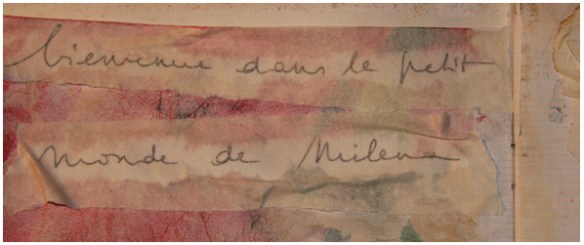 bienvenue dans le petit
monde de Milena